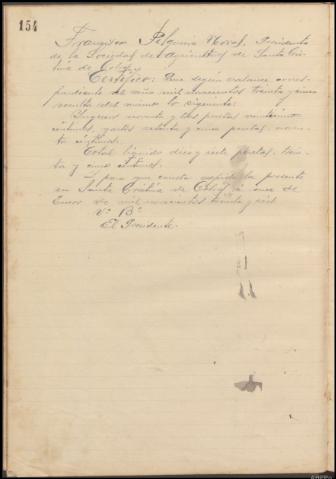 154
Francisco Novas, Presidente
de la Sociedad de Agricultores de Santa Cris
tina de
Certifico: Que según balance corres
pondiente al año mil novecientos treinta y cinco
resulta del mismo lo siguiente:
Ingresos noventa y tres pesetas
céntimos, gastos setenta y cinco pesetas,
céntimos.
Total líquido diez y siete pesetas, trein
ta y cinco céntimos.
Y para que conste expido la presente
en Santa Cristina de á once de
Enero de mil novecientos treinta y seis
Vº Bº
El Presidente.